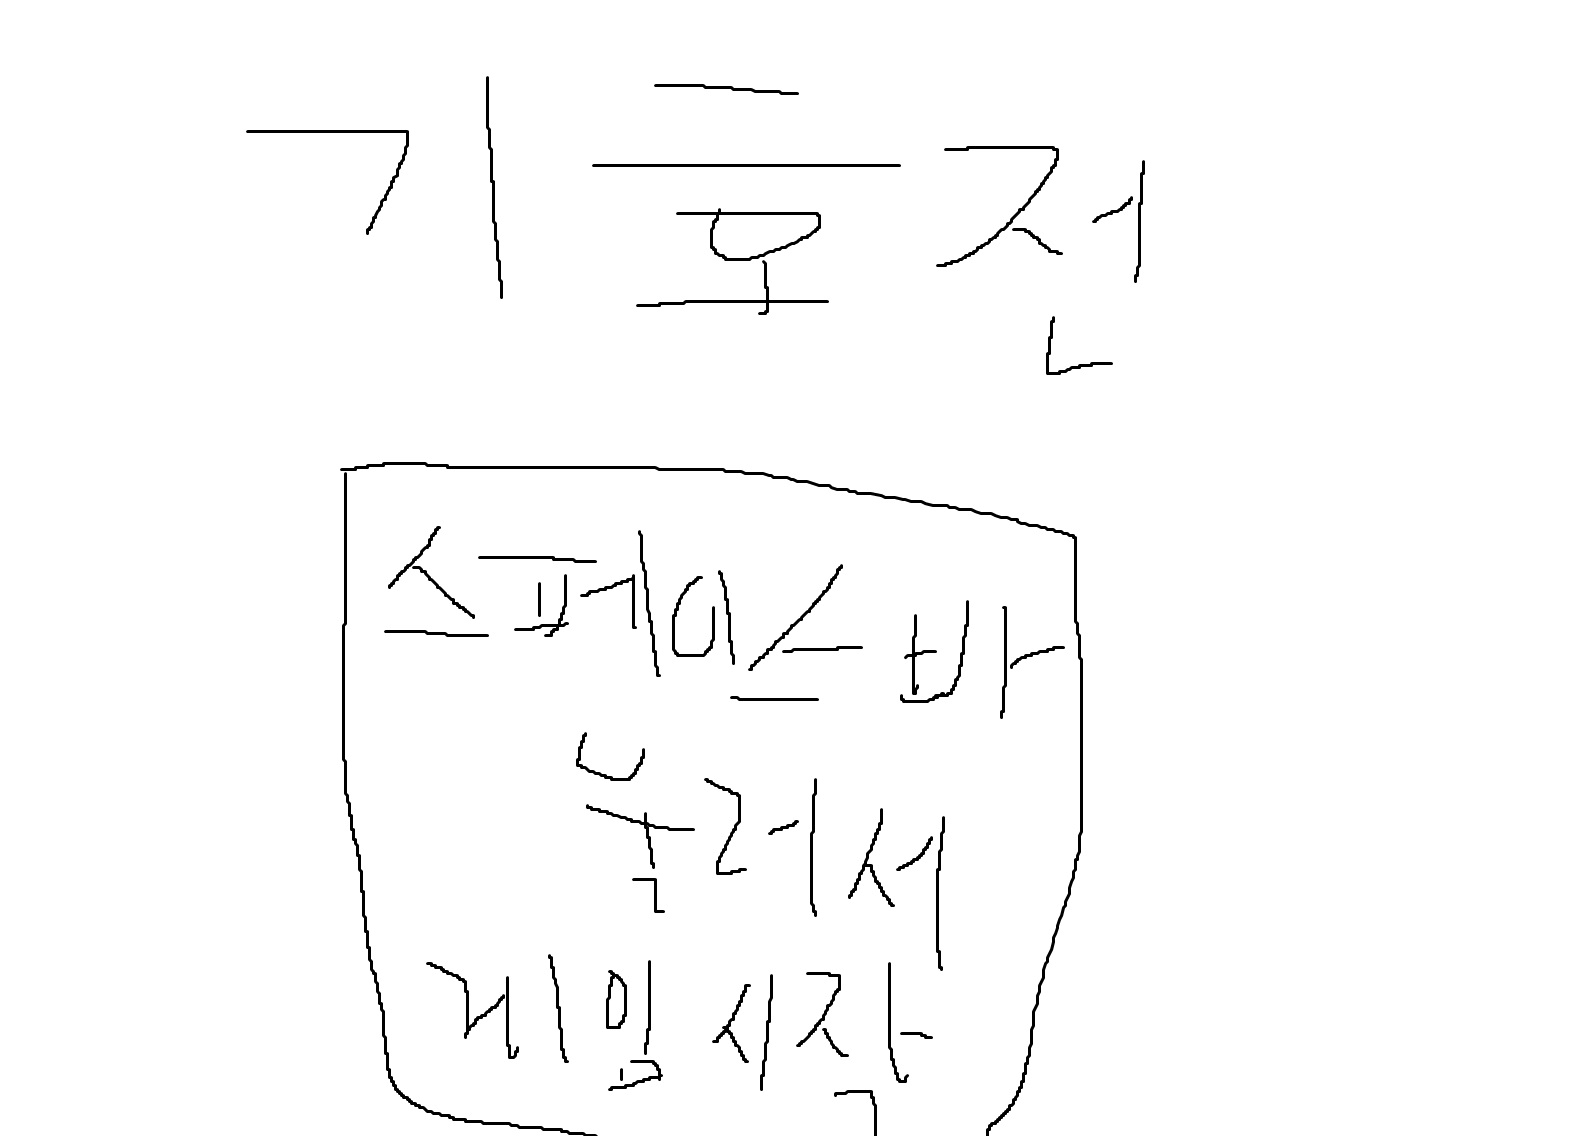 기호전
스페이스 바
눌러서
게임 시작